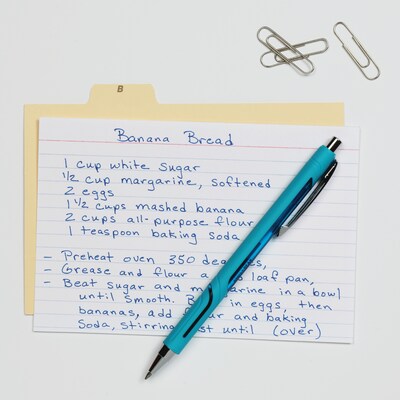 B
Banana Bread
1 cup white sugar
1/2 cup margarine, softened
2 eggs
1 1/2 cups mashed banana
2 cups all-purpose flour
1 teaspoon baking soda
- Preheat oven 350 degrees,
- Grease and flour a loaf pan,
- Beat sugar and margarine in a bowl
until smooth. in eggs, then
bananas, add flour and baking
soda, stirring until (over)